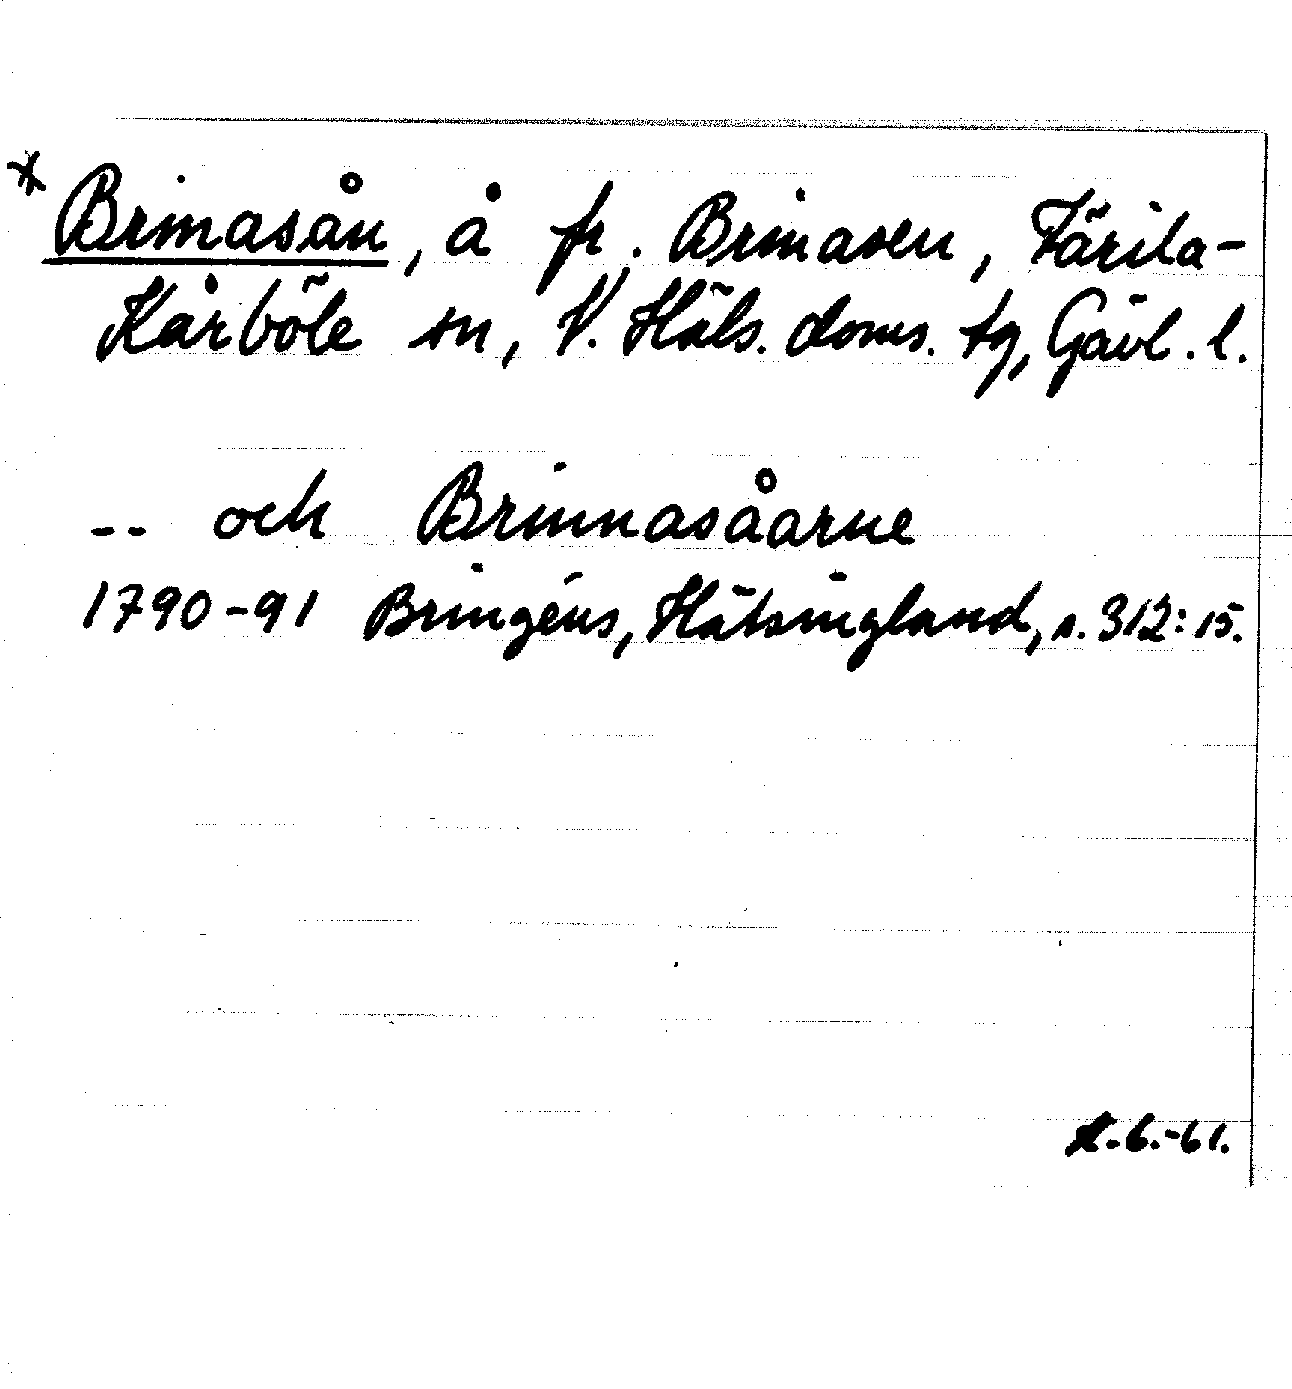 * Brinasån, å fr. Brinasen, Färila-
Kårböle sn, V. Häls. doms. tg, Gävl. l.
-- och Brinnasåarne
1790-91 Bringéus, Hälsingland, s. 312:15.
.6.-61.